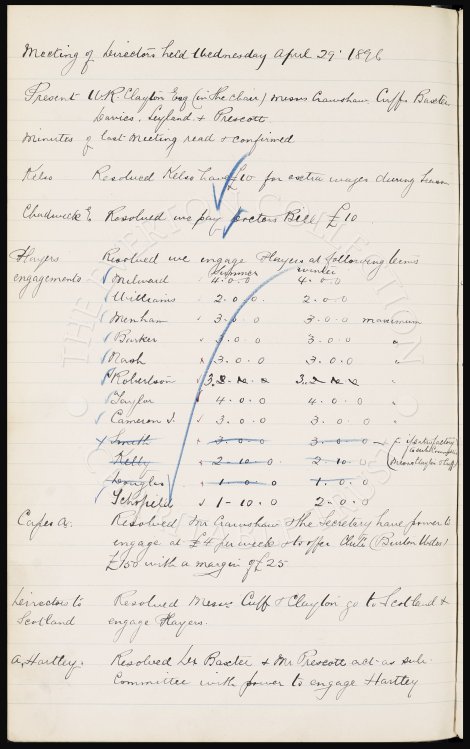 Meeting of Directors held Wednesday April 29th 1896
Present W.R. Clayton Esq (in the chair) Messrs Crawshaw, Cuff, Baxter,
Davies, Leyland & Prescott
Minutes of last meeting read & confirmed
Kelso Resolved Kelso have £10 for extra wages during Season
Chadwick E. Resolved we pay doctors Bill £10.
Players Resolved we engage Players at following terms
Summer Winter
engagements Milward 4.0.0 4.0.0
Williams 2.0.0. 2.0.0
Menham 3.0.0 3.0.0 maximum
Barker 3.0.0 3.0.0 "
Nash 3.0.0 3.0.0 "
Robertson "
Taylor 4.0.0 4.0.0 "
Cameron J. 3.0.0 3.0.0 "
Smith 3.0.0 3.0.0 + if satisfactory
Kelly 2-10.0 2.10.0 (Messrs Clayton & Cuff)
Douglas 1.0.0 1.0.0
Schofield 1-10.0 2-0.0
Capes A. Resolved Mr Crawshaw & the Secretary have power to
engage at £4 per week & to offer Club (Burton Utd)
£150 with a margin of £25
Directors to Resolved Messrs Cuff & Clayton go to Scotland &
Scotland engage Players.
A. Hartley. Resolved Dr Baxter & Mr Prescott act as sub.
Committee with power to engage Hartley